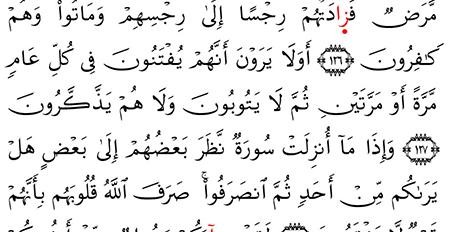 مَّرَضٌ فَزَادَتْهُمْ رِجْسًا إِلَىٰ رِجْسِهِمْ وَمَاتُوا۟ وَهُمْ
كَـٰفِرُونَ ﴿١٢٦﴾ أَوَلَا يَرَوْنَ أَنَّهُمْ يُفْتَنُونَ فِى كُلِّ عَامٍ
مَّرَّةً أَوْ مَرَّتَيْنِ ثُمَّ لَا يَتُوبُونَ وَلَا هُمْ يَذَّكَّرُونَ
﴿١٢٧﴾ وَإِذَا مَآ أُنزِلَتْ سُورَةٌ نَّظَرَ بَعْضُهُمْ إِلَىٰ بَعْضٍ هَلْ
يَرَىٰكُم مِّنْ أَحَدٍ ثُمَّ ٱنصَرَفُوا۟ۚ صَرَفَ ٱللَّهُ قُلُوبَهُم بِأَنَّهُمْ